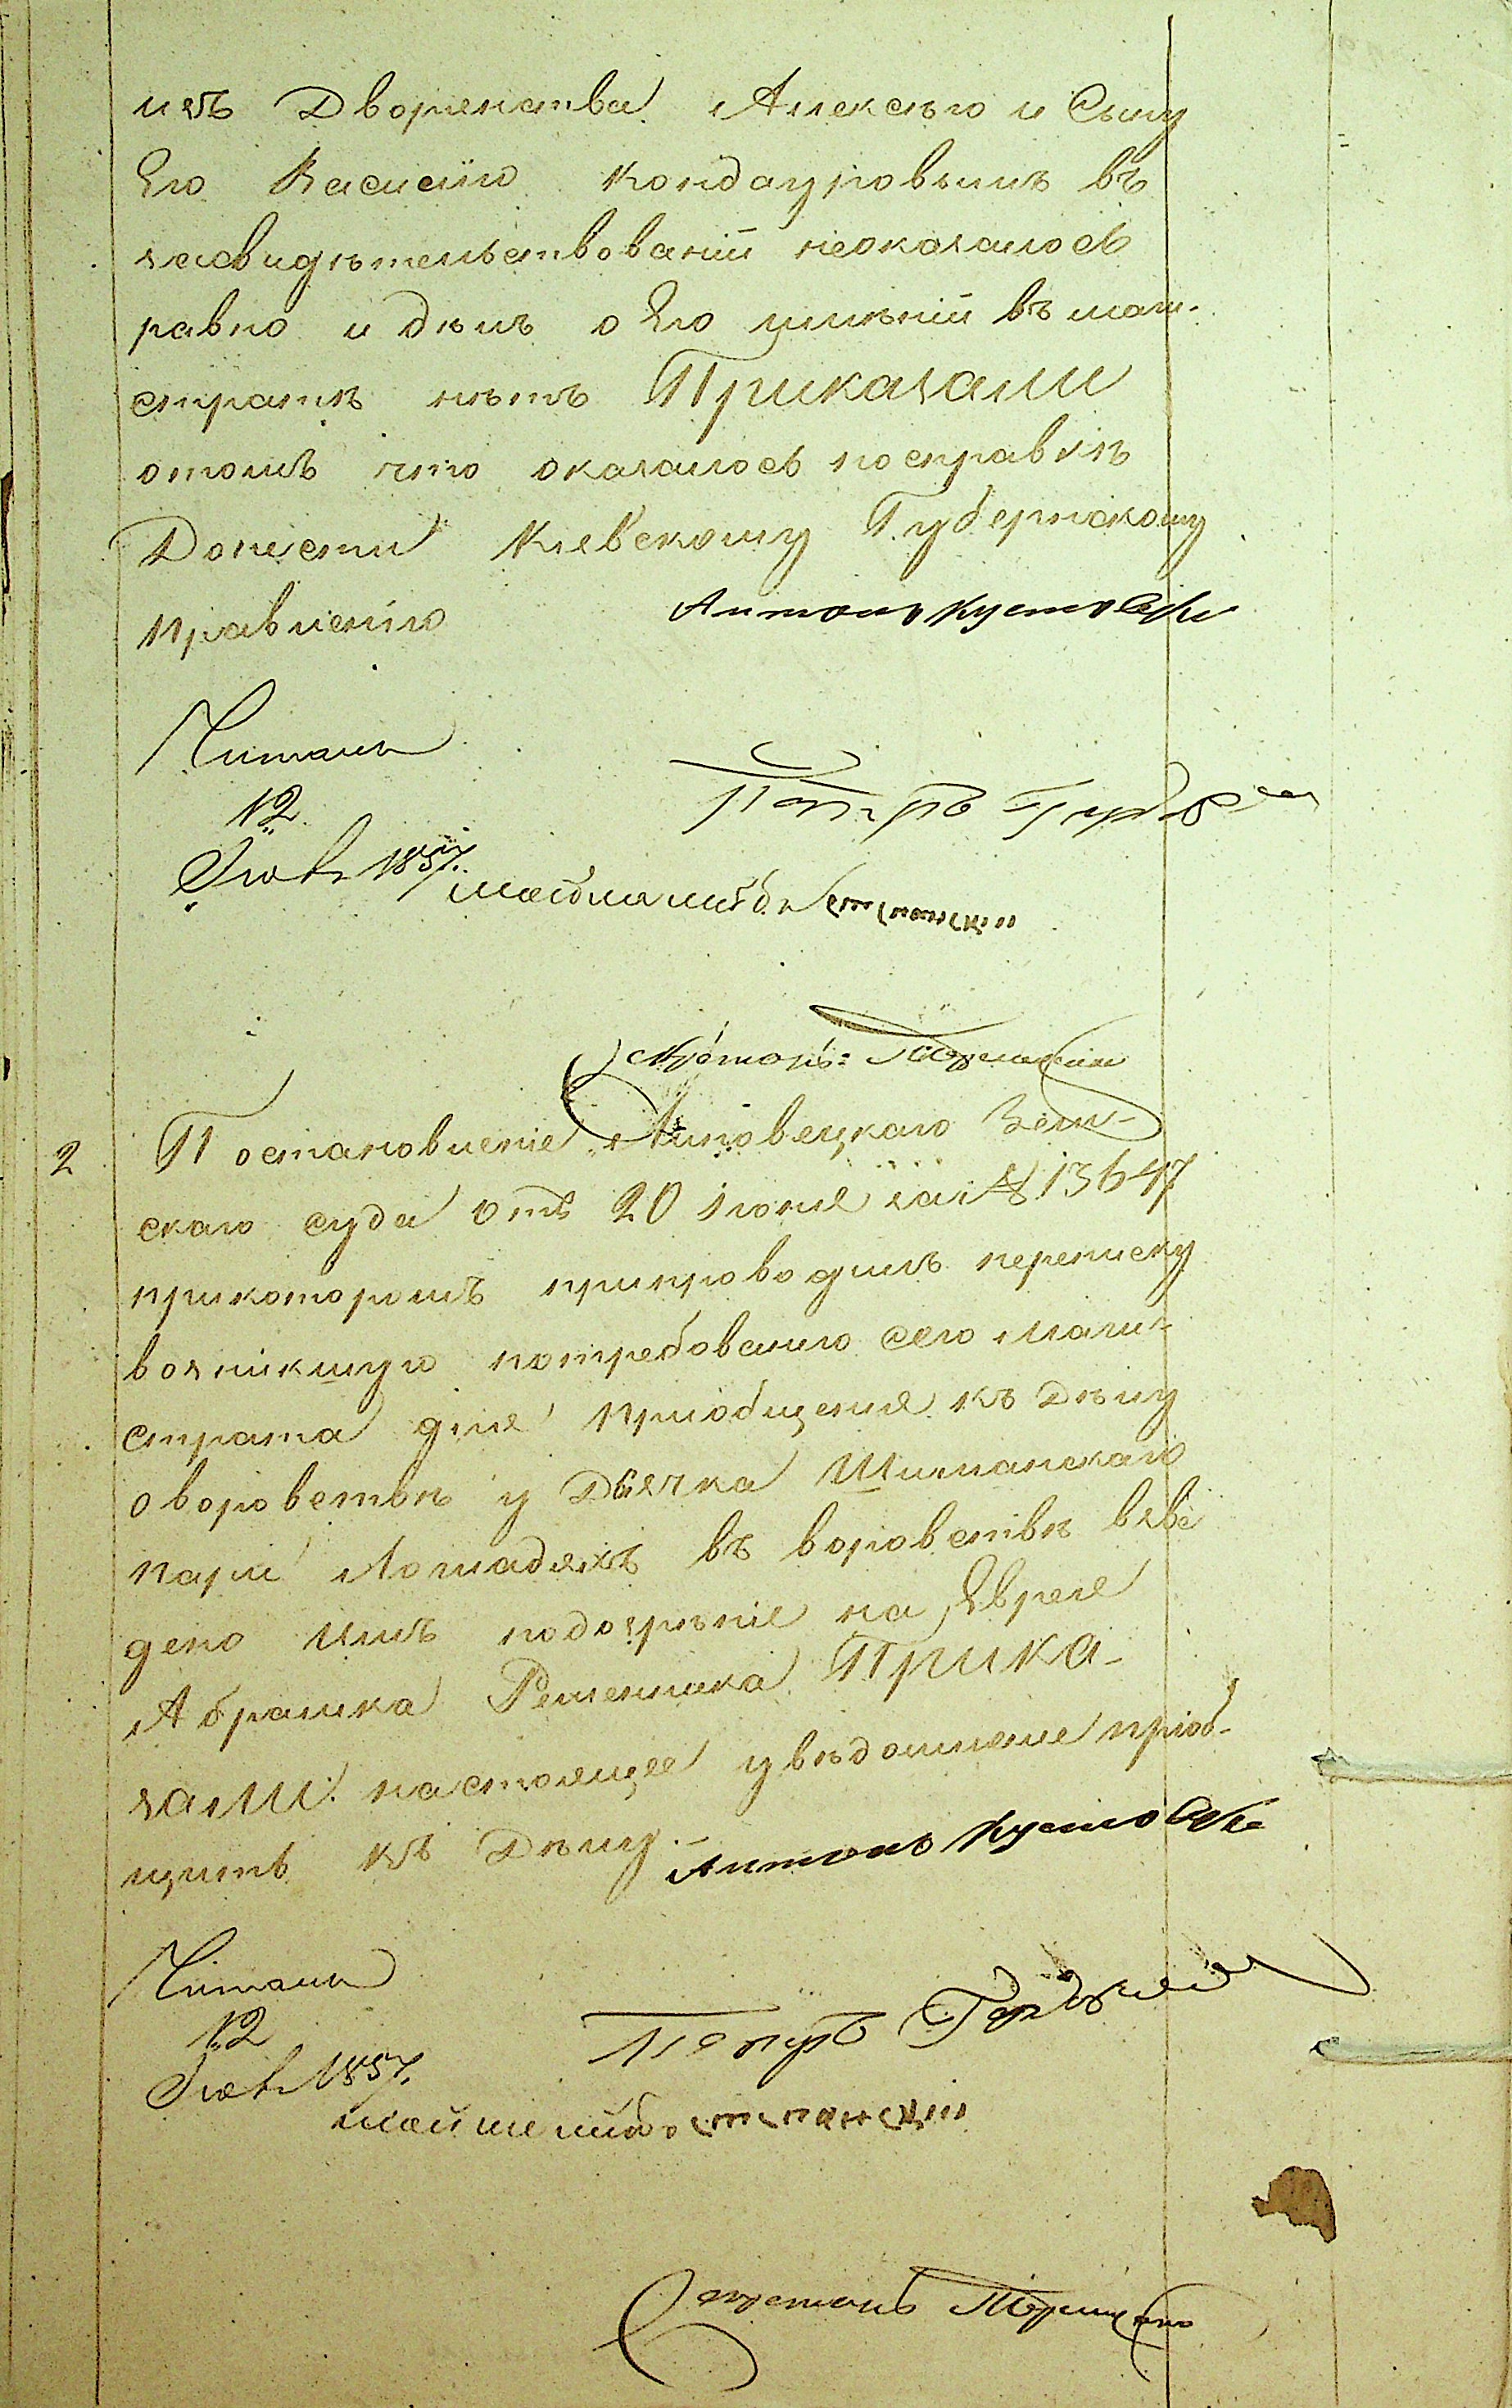 изъ Дворянства Алексѣю и Сыну
Его Василію Кондауровымъ въ
засвидѣтельствованіи неоказалось
равно и дѣлъ о Его имѣніи въ маги-
стратѣ нѣтъ Приказали
отомъ что оказалось посправкѣ
Донести Кіевскому Губернскому
правленію
Антонъ Кустовскі
Читалъ
12
Іюля 1857.
Петръ
Секретарь
2
Постановленіе Липовецкаго Зем-
скаго суда отъ 20 Іюня за № 13647
прикоторомъ припроводилъ переписку
возникшую потребованію сего Маги-
страта для пріобщенія къ Дѣлу
оворовствѣ у Дьячка Шиманскаго
пары Лошадяхъ въ воровствѣ взве
дено имъ подозрѣніе на Еврея
Абрамка Ременика Прика-
зали: настоящее увѣдомленіе пріоб-
щить къ Дѣлу.
Антонъ Кустовскі
Читалъ
12
Іюля 1857.
Петръ
Секретарь